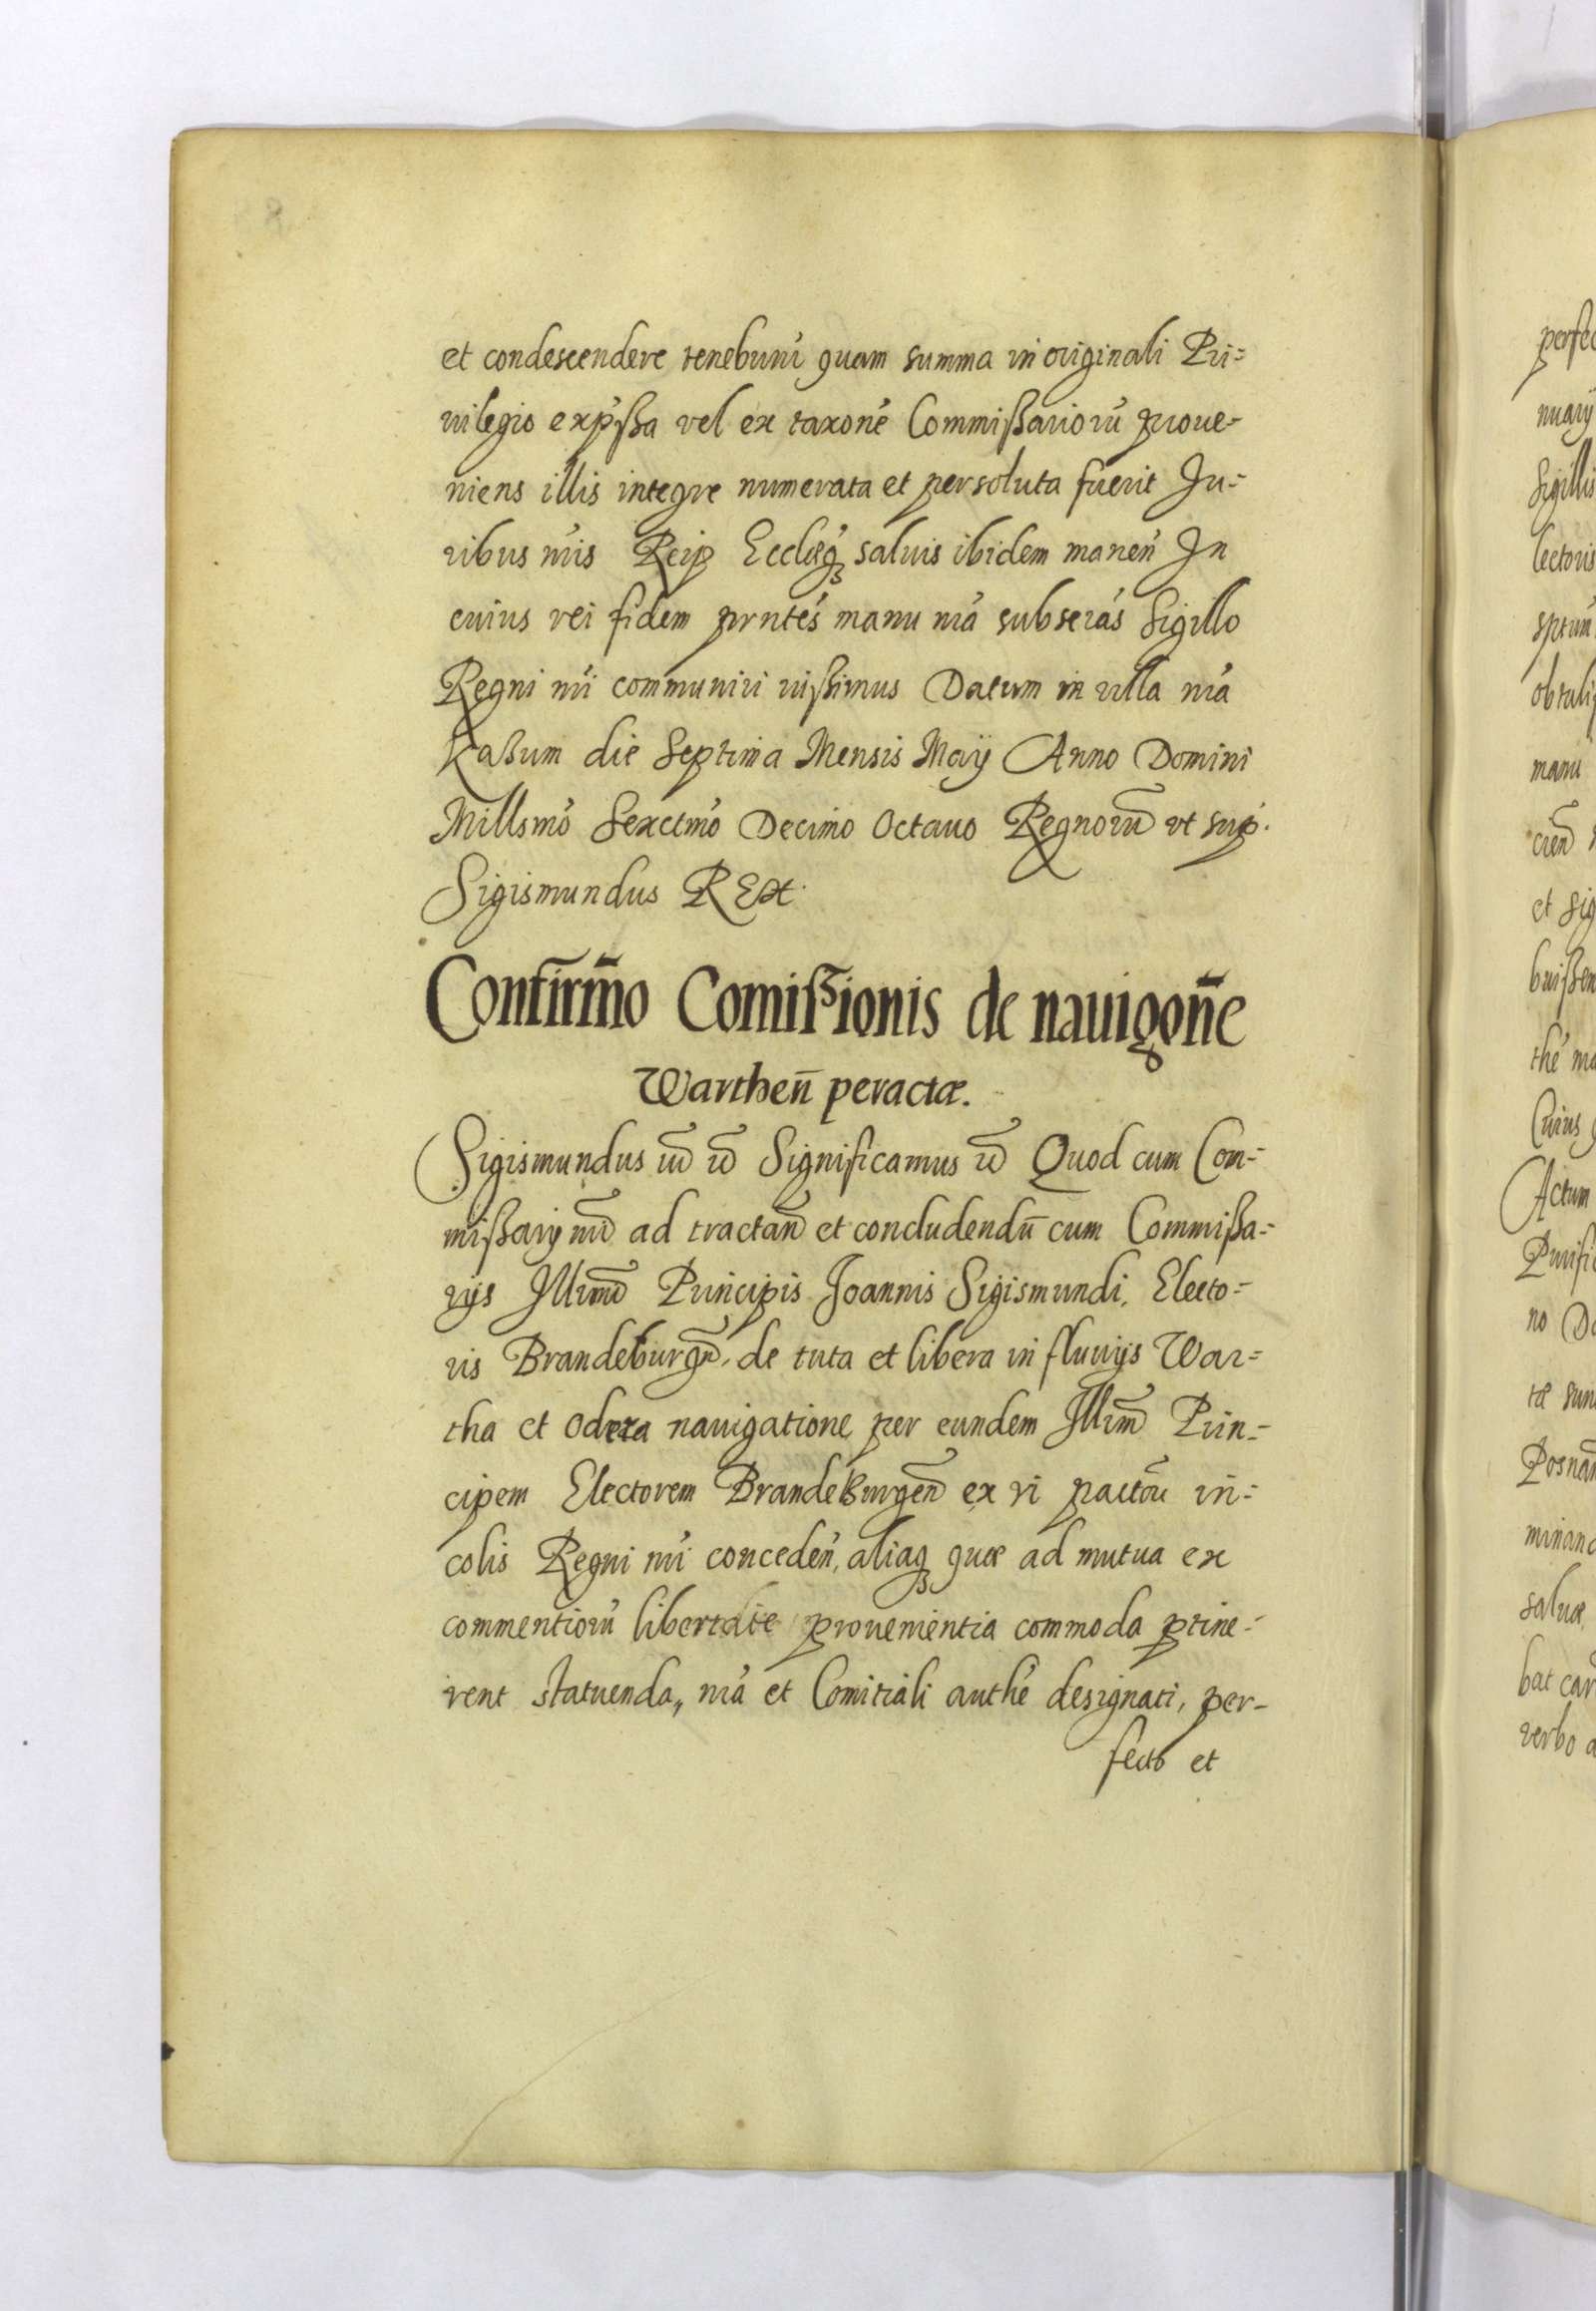 et condescendere tenebunt́ quam summa in originali Pri=
uilegio exṕssa vel ex taxoné Commissariorú proue-
niens illis integre numerata et persoluta fuerit Ju=
ribus nŕis Reip Ecclæq́ saluis ibidem maneń In
cuius rei fidem prnteś manu nŕa subscrás Sigillo
Regni nŕi communiri iussimus Datum in villa nŕa
Kaßum die Septima Mensis Maij Anno Domini
Millsmó Sexctmó Decimo Octauo Regnorū vt sup.
Sigismundus REX.
Confirmō Comissionis de nauigoñe
Warthen̄ peractæ.
Sigismundus Significamus Quod cum Com=
missarij nr̄i ad tractan̄ et concludendū cum Commissa=
rijs Illmī Principis Joannis Sigismundi, Electo=
ris Brandeburgn̄, de tuta et libera in fluuijs War=
tha et Odera nauigatione per eundem Illm̄ Prin=
cipem Electorem Brandeburgen̄ ex vi pactorū in=
colis Regni nŕi concedeń, aliaq quæ ad mutua ex
commentiorú libertate prouenientia commoda ptine=
rent statuenda, nŕa et Comitiali authé designati, per-
fecto et
8